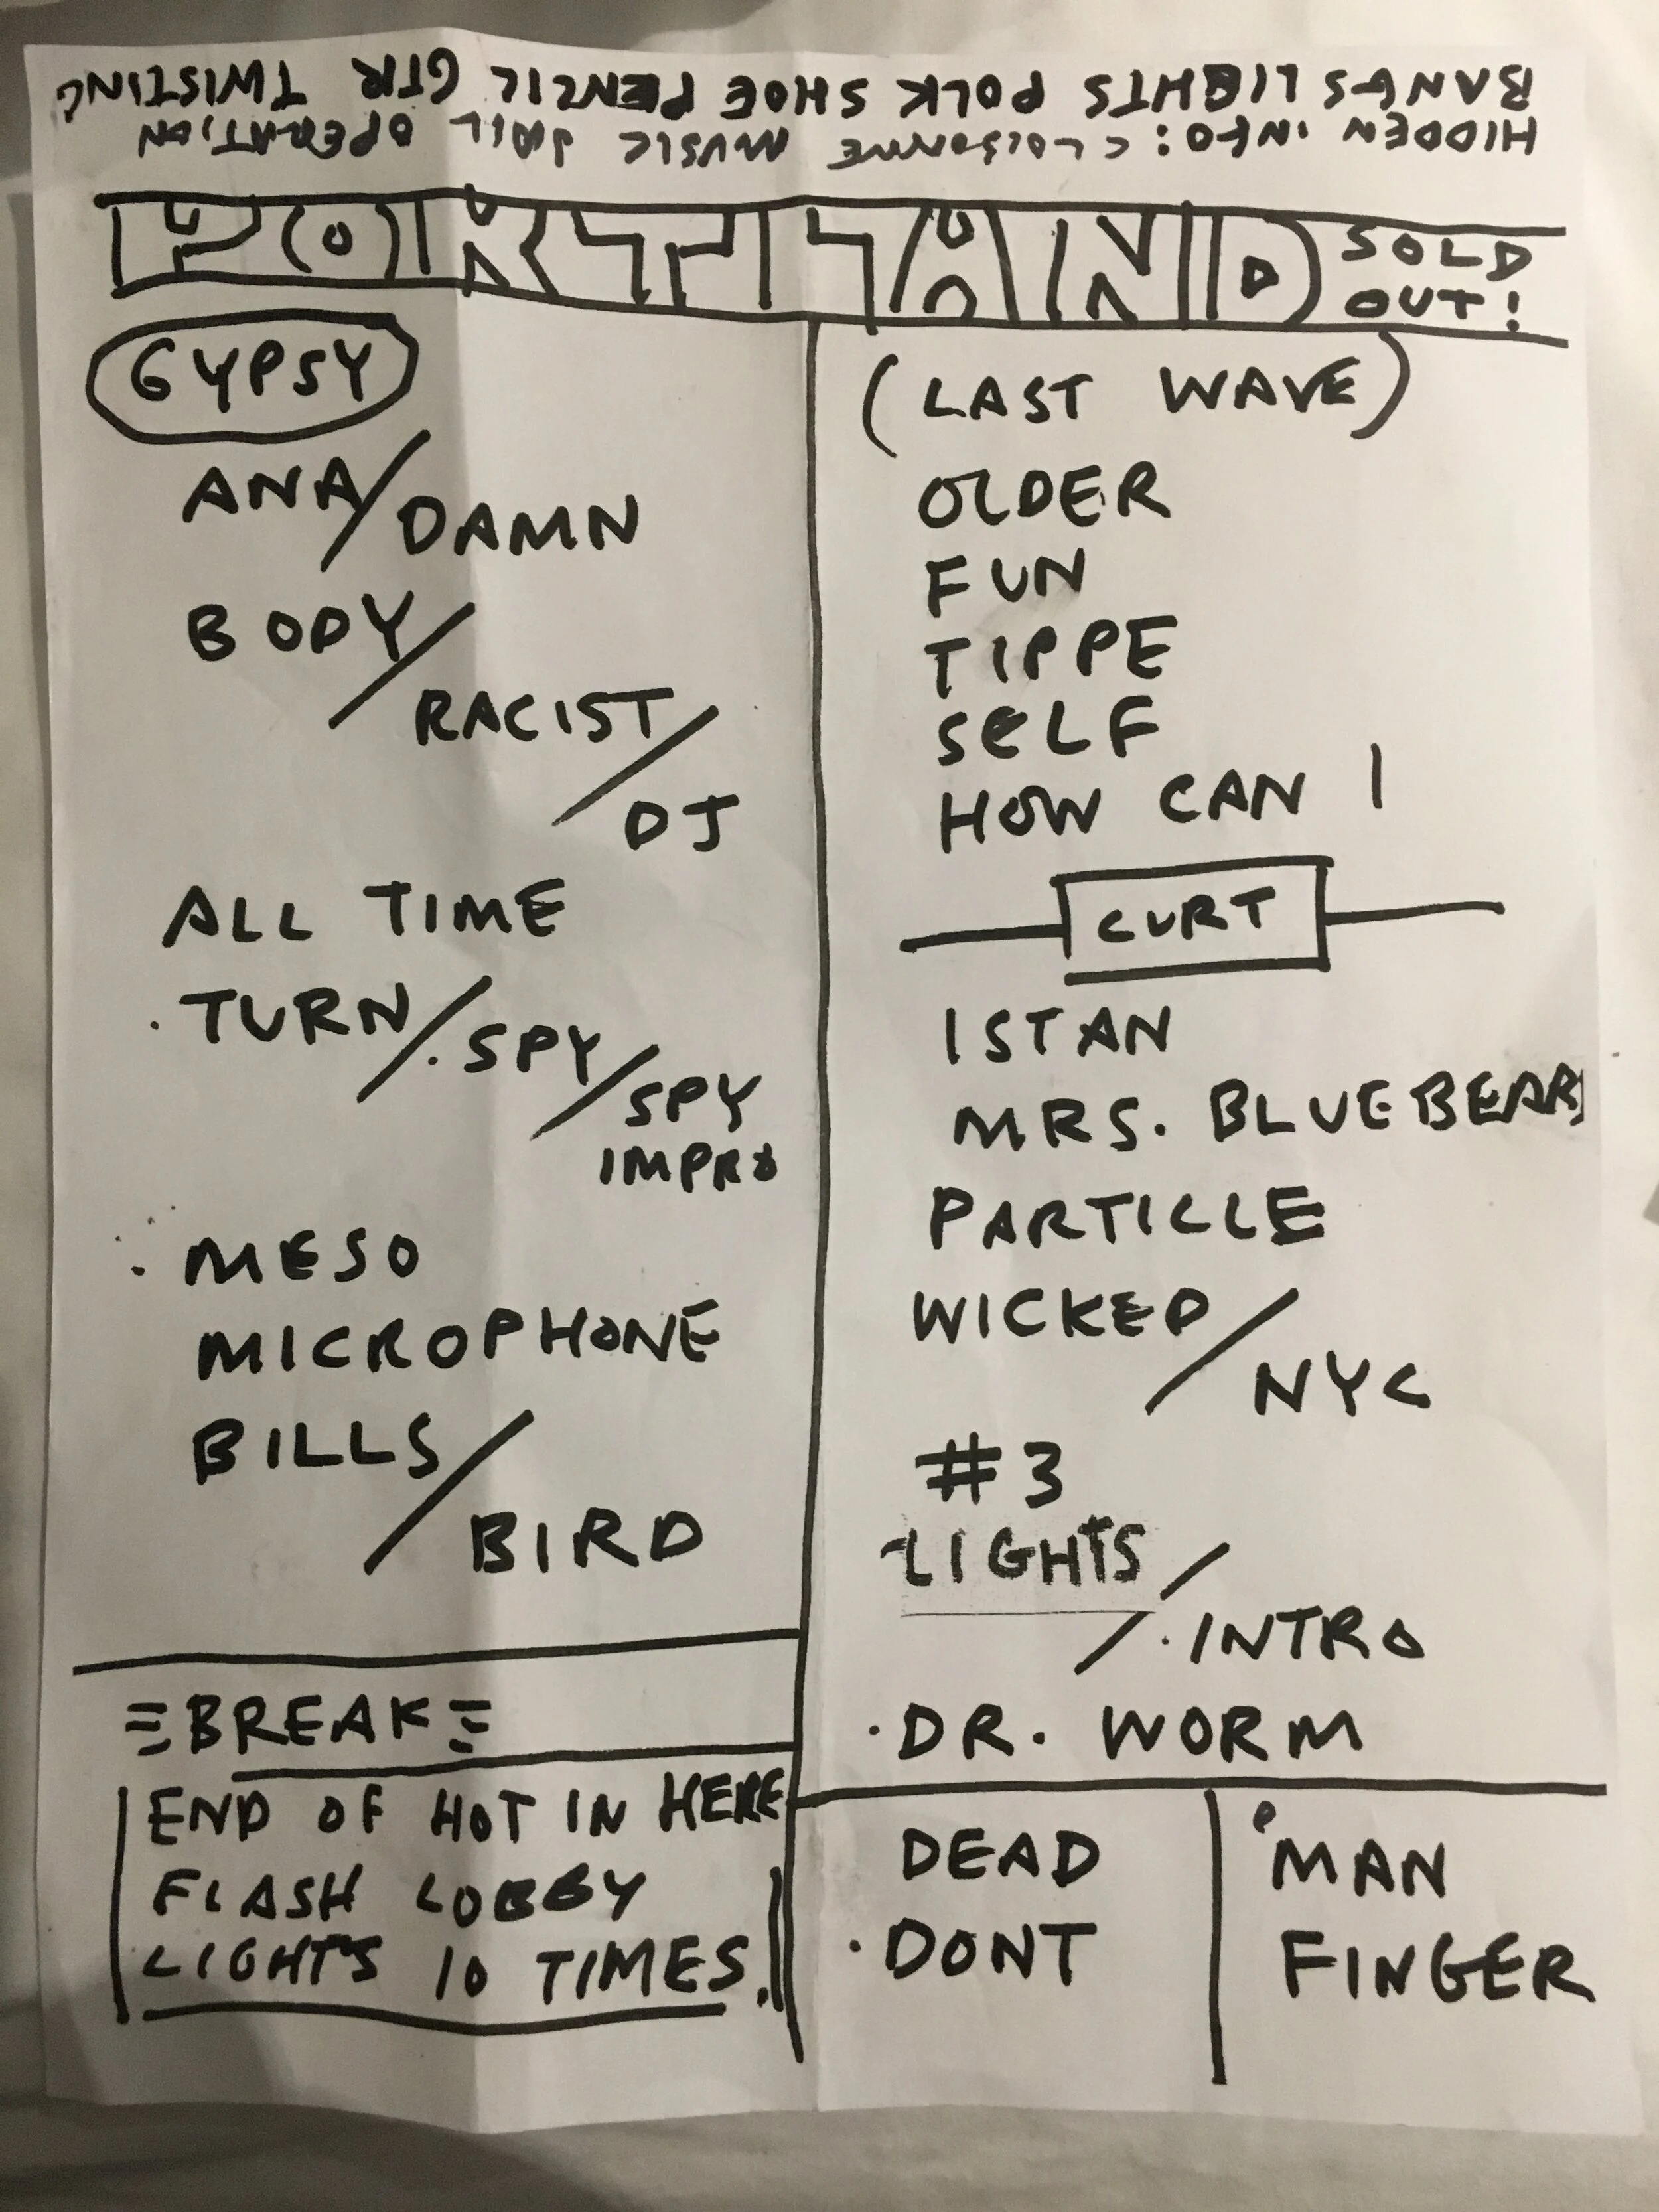 HIDDEN INFO: CLOISONNE MUSIC JAIL OPERATION
BANGS LIGHTS POLK SHOE PENCIL GTR TWISTING
PORTLAND SOLD OUT!
GYPSY
ANA/DAMN
BODY/
RACIST/
DJ
ALL TIME
TURN/SPY/
SPY
IMPRO
MESO
MICROPHONE
BILLS/
BIRD
BREAK
END OF HOT IN HERE
FLASH LOBBY
LIGHTS 10 TIMES.
(LAST WAVE)
OLDER
FUN
TIPPE
SELF
HOW CAN I
CURT
ISTAN
MRS. BLUEBEARD
PARTICLE
WICKED/
NYC
#3
LIGHTS/
INTRO
DR. WORM
DEAD
DONT
MAN
FINGER